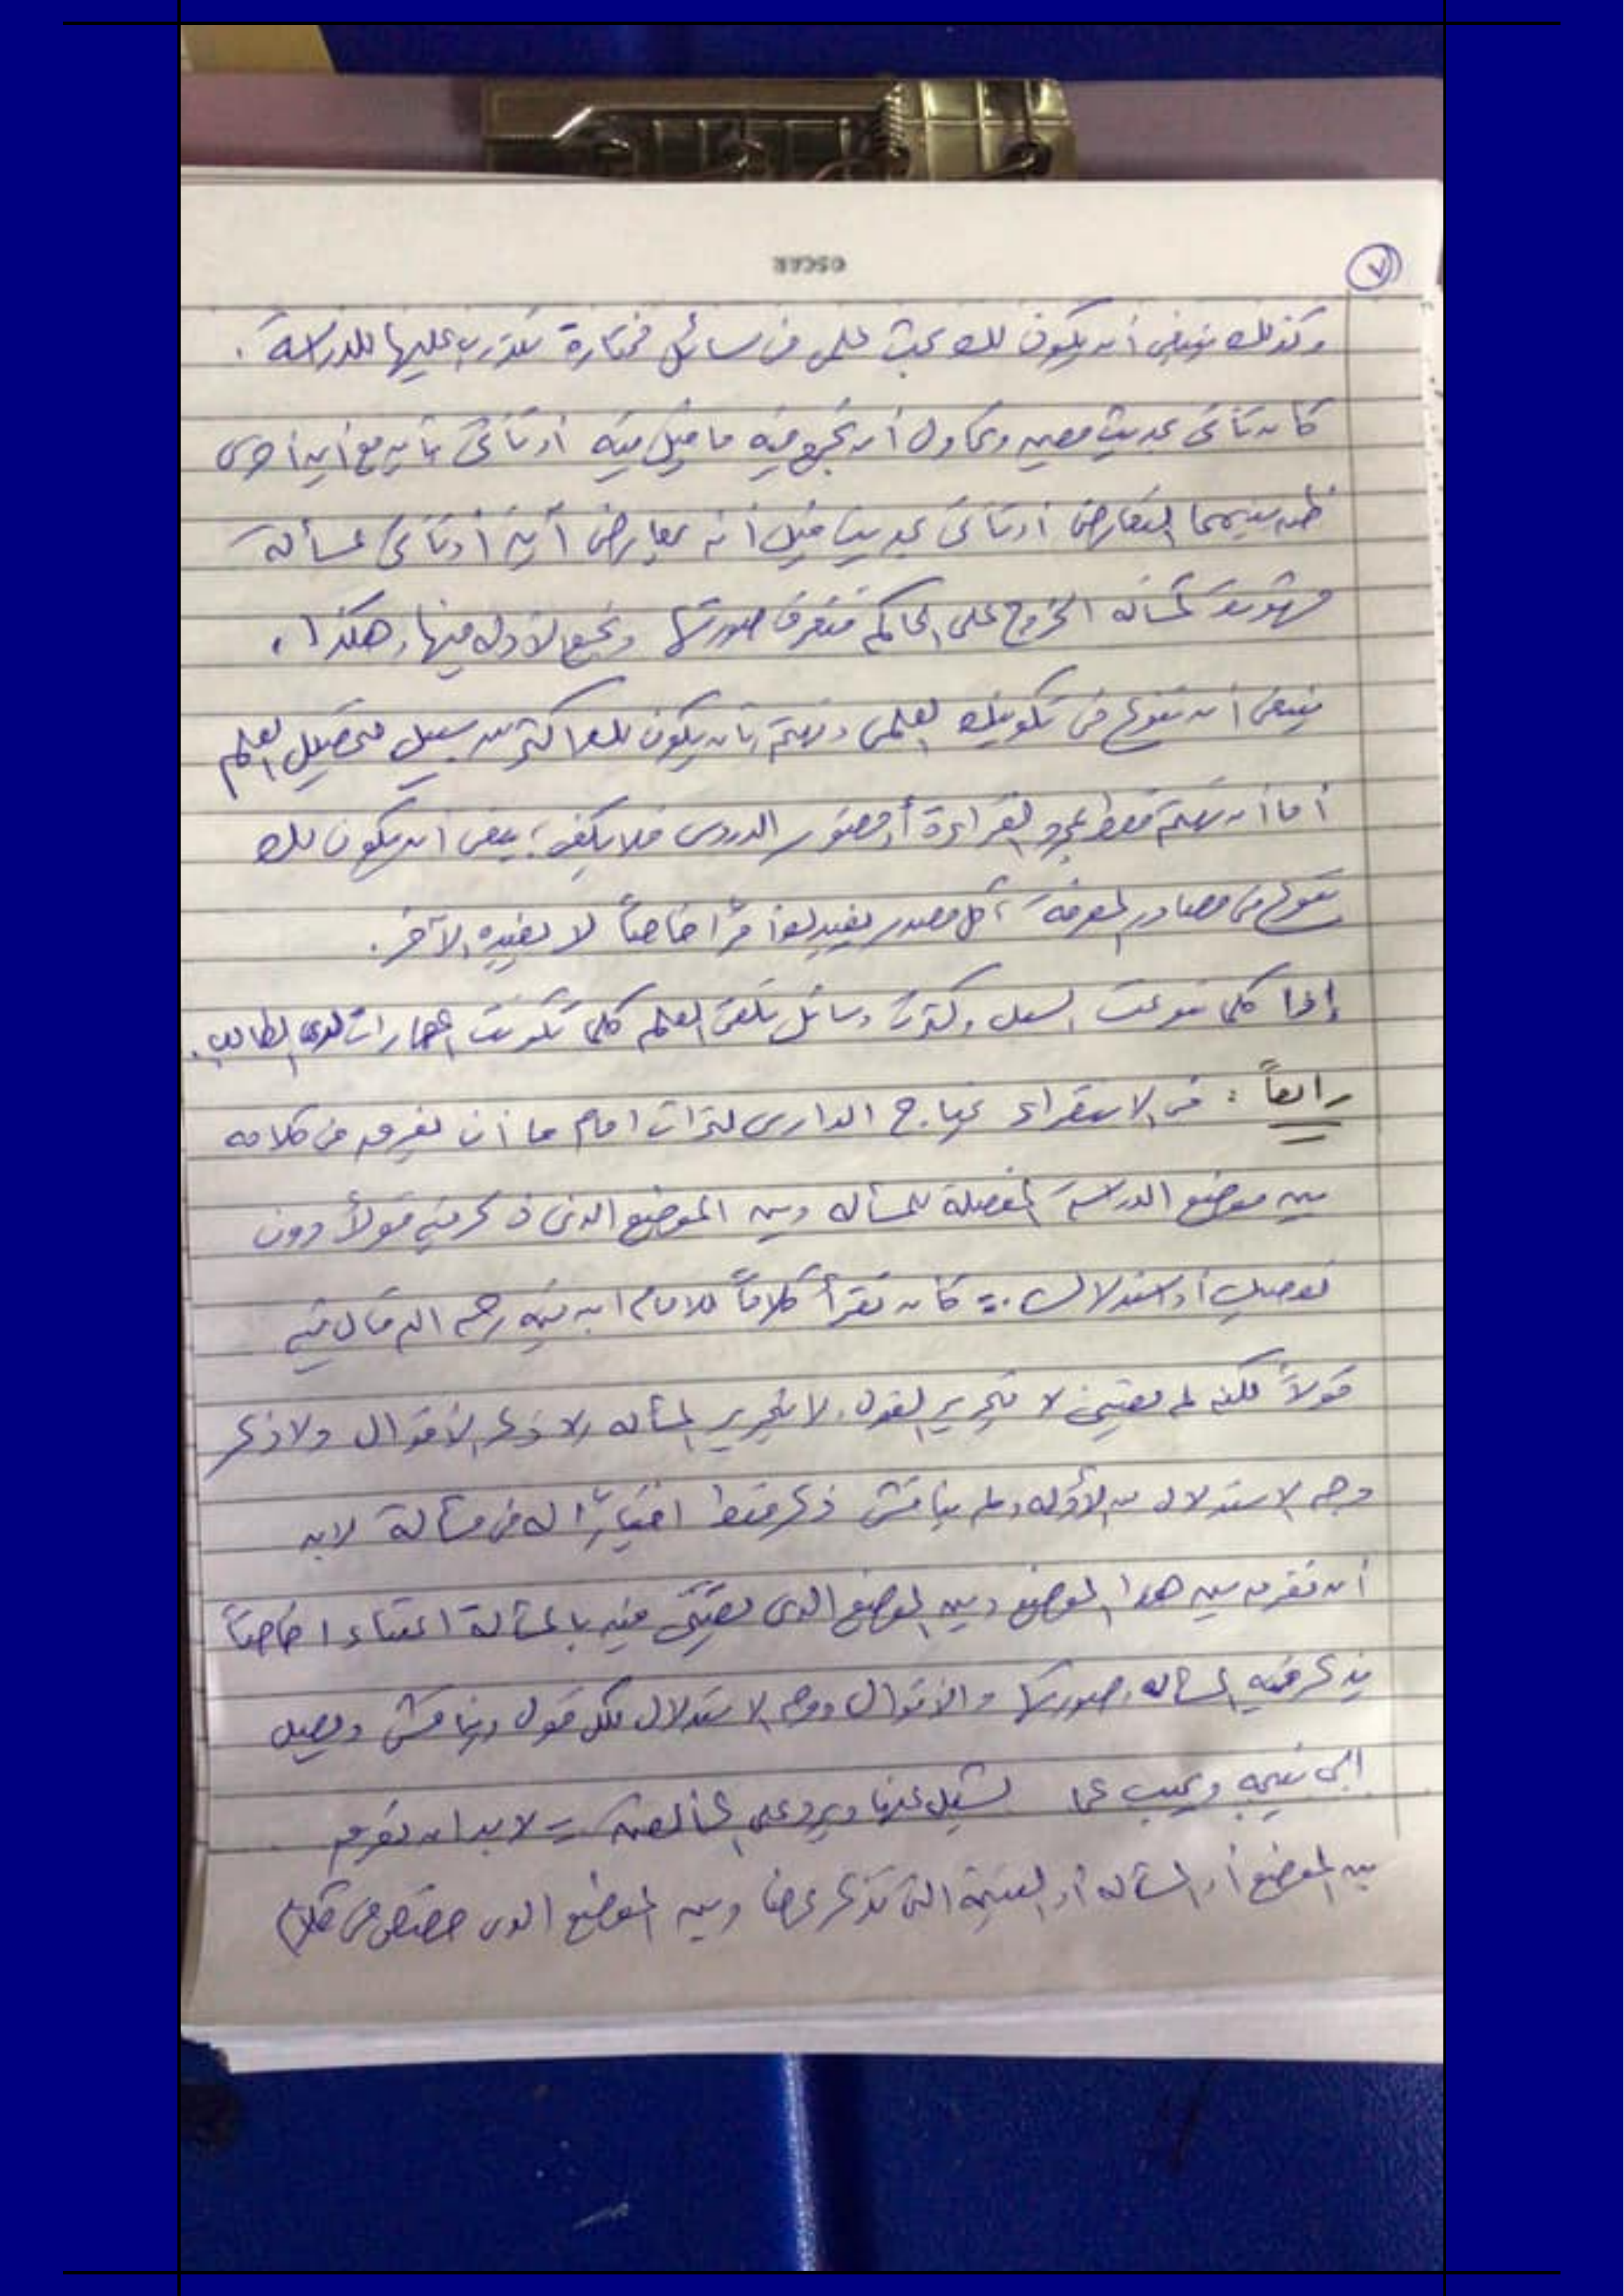 OSCAR
٧
وكذلك ينبغي أن يكون لك بحث علمي في مسائل مختارة تتدرب عليها للدراسة.
كأن تأتي بحديث معين وتحاول أن تجمع فيه ما قيل فيه أو تأتي بآية مع آية أخرى
ظن بينهما التعارض أو تأتي بحديث قيل أنه يعارض آية أو تأتي بمسألة
مشهورة كمسألة الخروج على الحاكم فتعرف صورتها وتجمع الأدلة فيها وهكذا،
ينبغي أن تنوع في تكوينك العلمي وتهتم بأن يكون لك أكثر من سبيل لتحصيل العلم
أما أن تهتم فقط بمجرد القراءة أو حضور الدروس فلا يكفي؛ ينبغي أن يكون لك
تنوع في مصادر المعرفة، كل مصدر يفيدك أمرا خاصاً لا يفيده الآخر.
إذا كلما تنوعت السبل وكثرت وسائل تلقي العلم كلما تكونت المهارات لدى الطالب.
رابعاً: في الاستقراء يحتاج الدارس لتراث امام ما أن يفرق في كلامه
بين موضع الدراسة المفصلة للمسألة وبين الموضع الذي ذكر فيه قولاً دون
تفصيل أو استدلال كأن تقرأ كلاماً للامام ابن تيمية رحمه الله قال فيه
قولاً لكنه لم يعتني لا بتحرير القول، لا بتحرير المسألة ولا ذكر الأقوال ولا ذكر
وجه الاستدلال من الأدلة ولم يناقش ذكر فقط اختياراً له في مسألة لابد
أن تفرق بين هذا الموضع وبين الموضع الذي يعتني فيه بالمسألة اعتناءا خاصاً
يذكر فيه المسألة وصورتها والأقوال ووجه الاستدلال لكل قول ويناقش ويصل
الى نتيجة ويجيب عما يشكل عليها ويرد على المخالفين = لابد أن تفرق
بين الموضع أو المسألة أو النتيجة التي تذكر عرضا وبين الموضع الذي في كلام